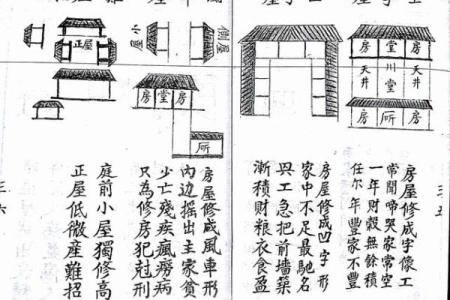 房 堂 房
天井 川堂 天井
房 房
房屋修成字像工
常聞啼哭家常空
一年財穀無餘積
任尔年豐家不豐
房屋修成凹字形
家中不足最馳名
興工急把前墻築
漸積財粮衣食盈
三五
側屋
小屋
正屋
房 堂 房
房屋修成風車形
內边摇出主家貧
少亡殘疾瘋癆病
只為修房犯尅刑
庭前小屋獨修高
正屋低微產難招
三六